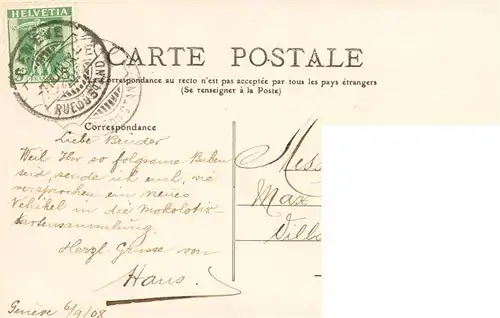 HELVETIA
GENÈVE
RUE DU STAND
CARTE POSTALE
Correspondance au recto n'est pas acceptée par tous les pays étrangers
(Se renseigner à la Poste)
Correspondance
Liebe Brüder
Weil Ihr so folgsame Buben
seid, sende ich euch, wie
versprochen ein neues
Vehikel in die Mokolotiv-
kartensammlung.
Herzl. Grüsse von
Hans.
Genève 6/9/08
Mess
Max
Villa